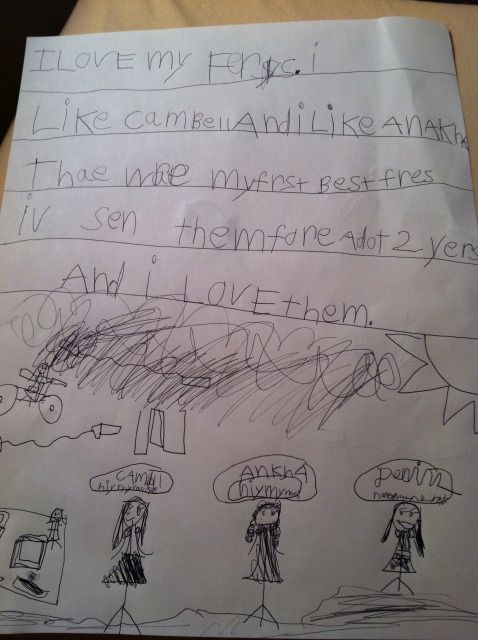 I LOVE my Fergs. i
Like CamBell And i Like ANAKHA
Thae wree my frst BEST fres
iv sen them fore Adot 2 yers
And i LOVE them.
CAMBll
ANKHA
Denim
hiy my